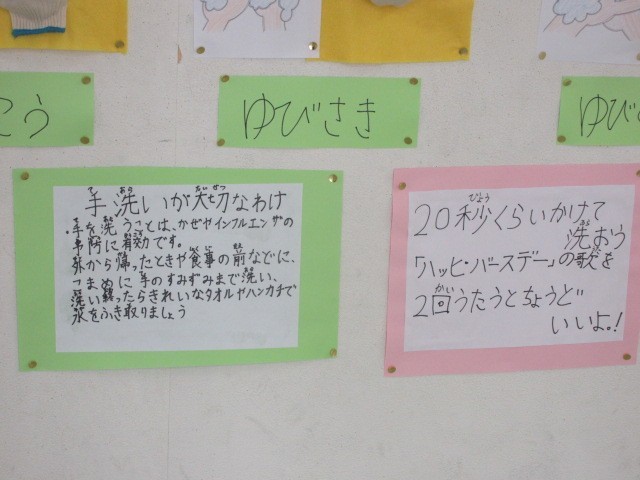 こう
ゆびさき
ゆび
手洗いが大切なわけ
手を洗うことは、かぜやインフルエンザの
予防に有効です。
外から帰ったときや食事の前などに、
つまめに手のすみずみまで洗い、
洗い終ったらきれいなタオルやハンカチで
水をふき取りましょう
20秒くらいかけて
洗おう
「ハッピ・バースデー」の歌を
2回うたうとちょうど
いいよ。!